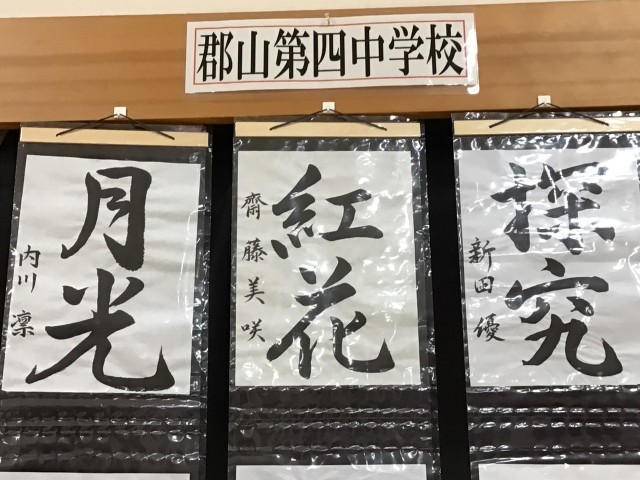 郡山第四中学校
探究
新田優
紅花
齋藤美咲
月光
内川凛